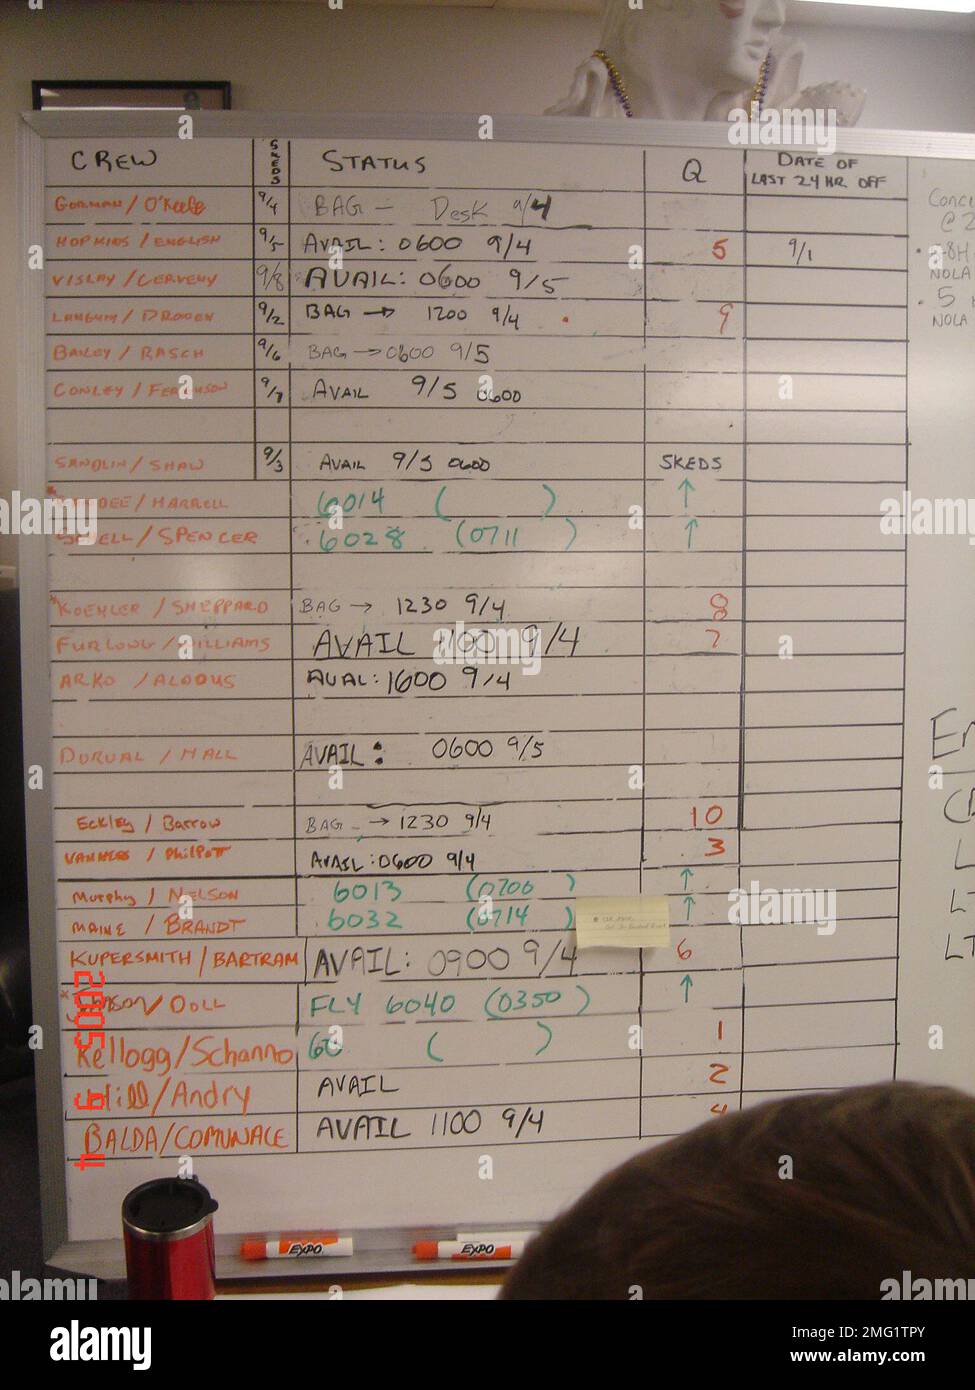 CREW SKEDS STATUS Q DATE OF LAST 24 HR. OFF
GORMAN / O'Keefe 9/4 BAG – Desk 9/4
HOPKINS / ENGLISH 9/5 AVAIL: 0600 9/4 5 9/1
VISLAY / CERVENY 9/8 AVAIL: 0600 9/5
LANGUM / DROGEN 9/2 BAG → 1200 9/4 9
BAILEY / RASCH 9/6 BAG → 0600 9/5
CONLEY / FERGUSON 9/7 AVAIL 9/5 0600
SANDLIN / SHAW 9/3 AVAIL 9/5 0600 SKEDS
/ HARRELL 6014 ( ) ↑
/ SPENCER 6028 (0711 ) ↑
KOEHLER / SHEPPARD BAG → 1230 9/4 8
FURLONG / WILLIAMS AVAIL 1100 9/4 7
ARKO / ALDOUS AVAL: 1600 9/4
DORVAL / HALL AVAIL: 0600 9/5
Eckley / Barrow BAG → 1230 9/4 10
/ Philpott AVAIL: 0600 9/4 3
Murphy / NELSON 6013 (0706 ) ↑
MAINE / BRANDT 6032 (0714 ) ↑
KUPERSMITH / BARTRAM AVAIL: 0900 9/4 6
/ DOLL FLY 6040 (0350 ) ↑
Kellogg/Schanno 60 ( ) 1
Hill/Andry AVAIL 2
BALDA/COMUNALE AVAIL 1100 9/4 4
@ 2
NOLA
5
NOLA
2005 9 4
EXPO
EXPO
alamy
Image ID: 2MG1TPY
www.alamy.com